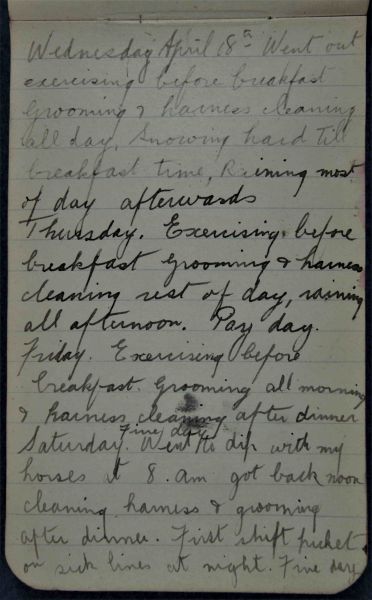 Wednesday April 18th Went out
exercising before breakfast
Grooming & harness cleaning
all day, Snowing hard till
breakfast time, Raining most
of day afterwards
Thursday. Exercising before
breakfast Grooming & harness
cleaning rest of day, raining
all afternoon. Pay day.
Friday. Exercising before
breakfast. Grooming all morning
& harness cleaning after dinner
Fine day
Saturday. Went to dip with my
horses at 8. am got back noon
cleaning harness & grooming
after dinner. First shift picket
on sick lines at night. Fine day